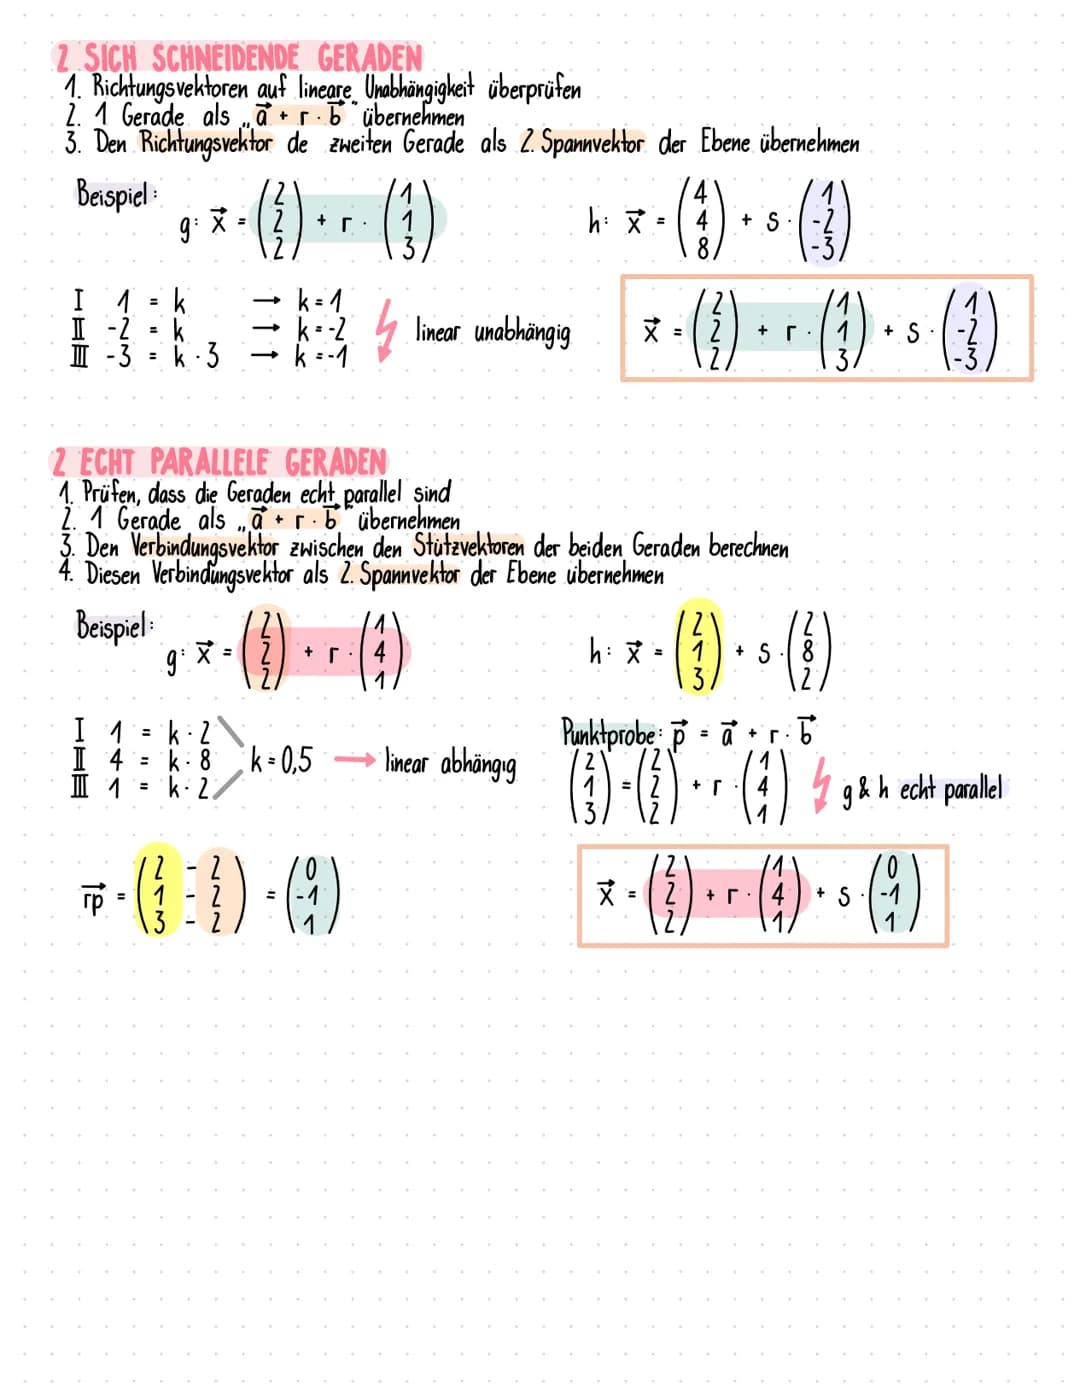 2 SICH SCHNEIDENDE GERADEN
1. Richtungsvektoren auf lineare Unabhängigkeit überprüfen
2. 1 Gerade als „a⃗ + r · b⃗" übernehmen
3. Den Richtungsvektor de zweiten Gerade als 2. Spannvektor der Ebene übernehmen
Beispiel: g: x⃗ = (2 2 2) + r · (1 1 3) h: x⃗ = (4 4 8) + s · (1 -2 -3)
I 1 = k → k = 1
II -2 = k → k = -2
III -3 = k · 3 → k = -1
linear unabhängig
x⃗ = (2 2 2) + r · (1 1 3) + s · (1 -2 -3)
2 ECHT PARALLELE GERADEN
1. Prüfen, dass die Geraden echt parallel sind
2. 1 Gerade als „a⃗ + r · b⃗" übernehmen
3. Den Verbindungsvektor zwischen den Stützvektoren der beiden Geraden berechnen
4. Diesen Verbindungsvektor als 2. Spannvektor der Ebene übernehmen
Beispiel: g: x⃗ = (2 2 2) + r · (1 4 1) h: x⃗ = (2 1 3) + s · (2 8 2)
I 1 = k · 2
II 4 = k · 8
III 1 = k · 2
k = 0,5 → linear abhängig
Punktprobe: p⃗ = a⃗ + r · b⃗
(2 1 3) = (2 2 2) + r · (1 4 1) g & h echt parallel
rp⃗ = (2 - 2 1 - 2 3 - 2) = (0 -1 1)
x⃗ = (2 2 2) + r · (1 4 1) + s · (0 -1 1)